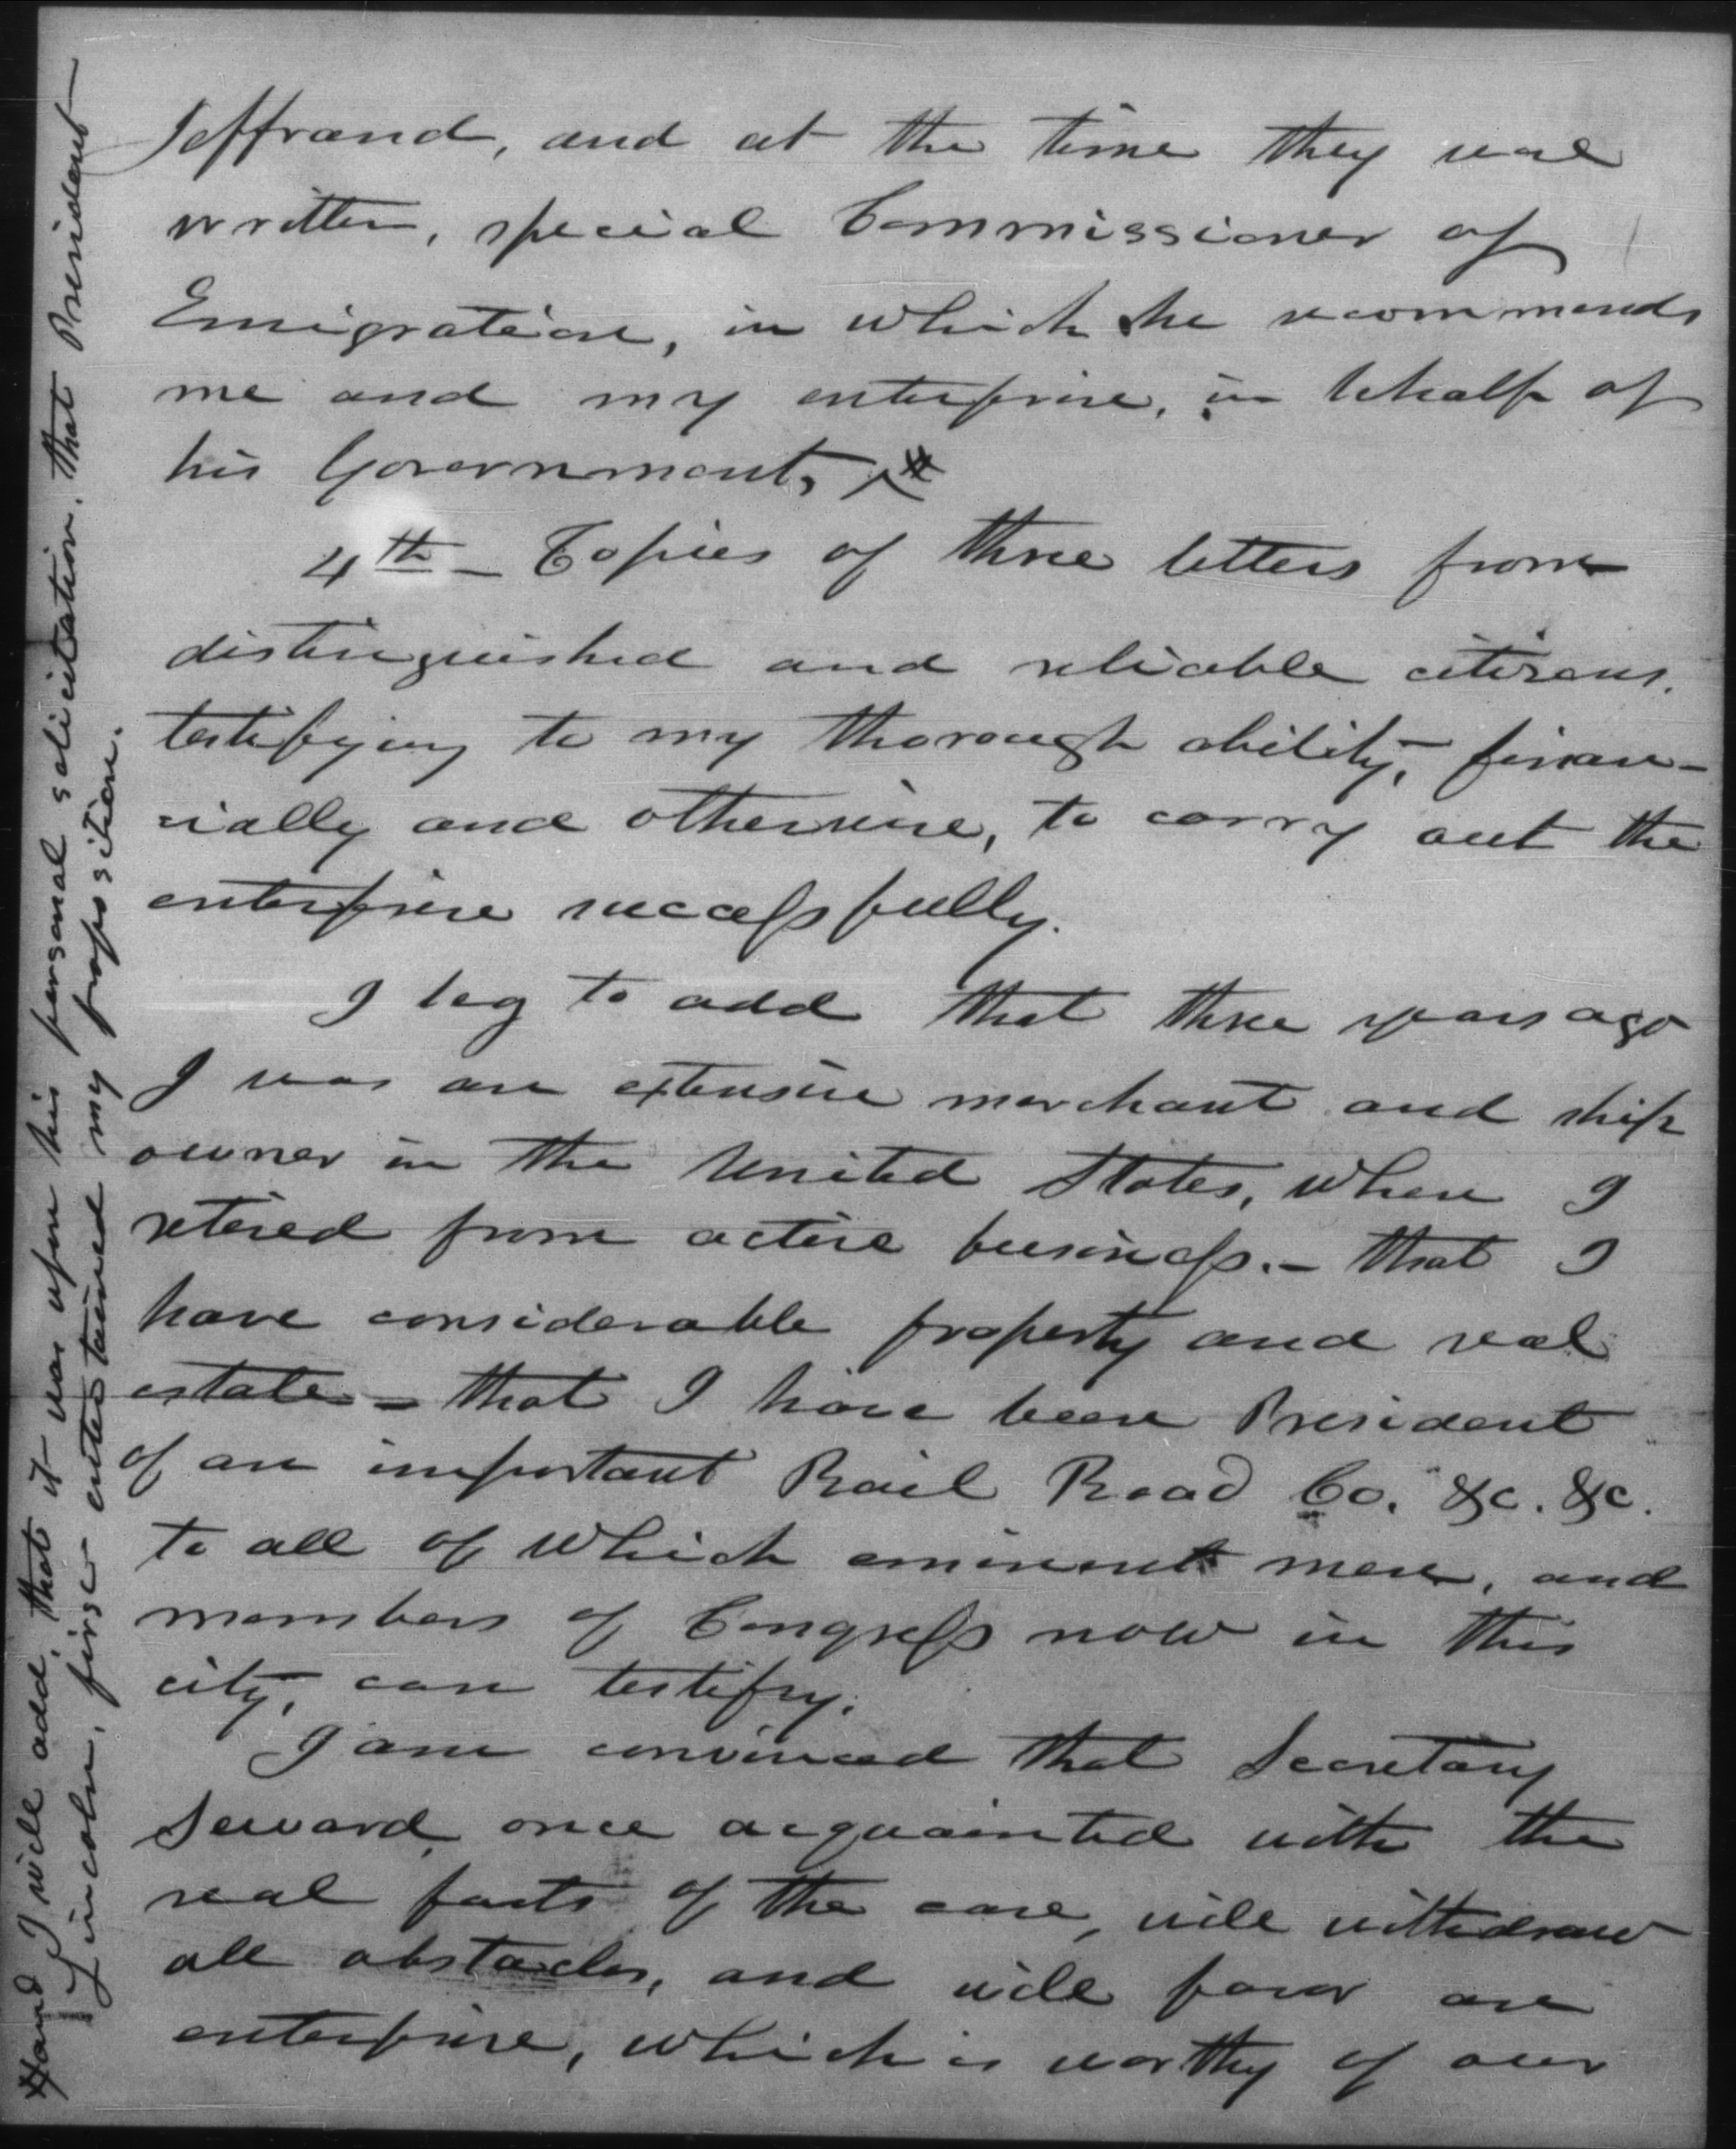 Jeffrard, and at the time they were
written, special Commissioner of
Emigration, in which he recommends
me and my enterprise, in behalf of
his Government, #
4th - Copies of three letters from
distinguished and reliable citizens,
testifying to my thorough ability, finan-
cially and otherwise, to carry out the
enterprise successfully.
I beg to add that three years ago
I was an extensive merchant and ship
owner in the United States, when I
retired from active business. - that I
have considerable property and real
estate - that I have been President
of an important Rail Road Co. &c. &c.
to all of which eminent men, and
members of Congress now in this
city, can testify.
I am convinced that Secretary
Seward, once acquainted with the
real facts of the case, will withdraw
all obstacles, and will favor an
enterprise, which is worthy of our
# and I will add, that it was upon his personal solicitation, that President
Lincoln, first entertained my proposition.